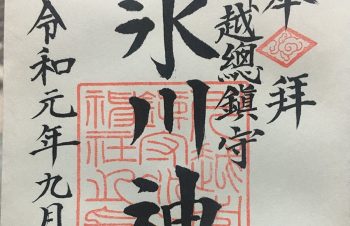 奉拝
越總鎮守
氷川神
令和元年九月